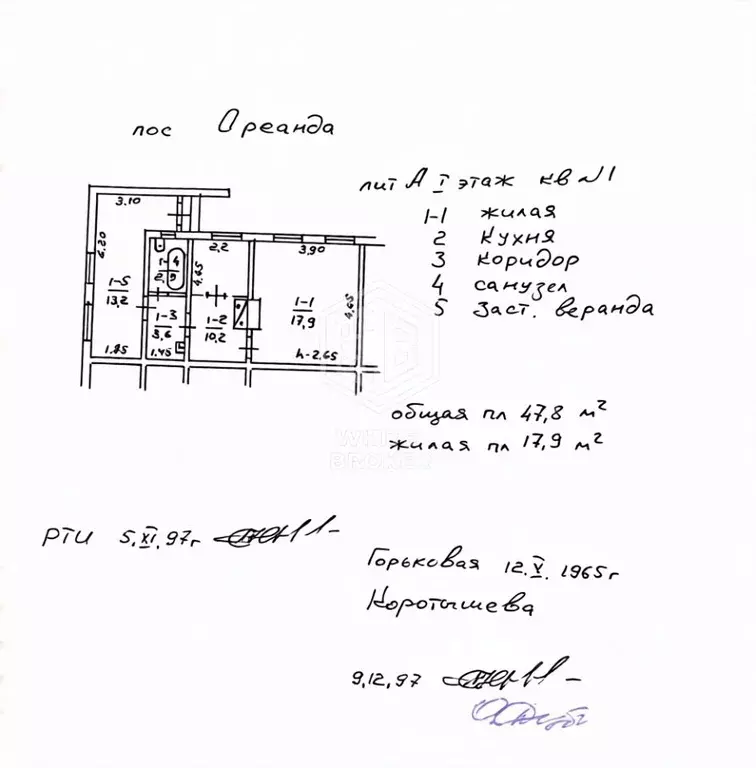 пос Ореанда
лит А I этаж кв №1
1-1 жилая
2 Кухня
3 коридор
4 санузел
5 Заст. веранда
3.10
6.20
1-5
13,2
1.85
1-4
2,9
1-3
3,6
1.45
4.65
2,2
1-2
10,2
3,90
1-1
17,9
4,65
h-2.65
общая пл 47,8 м²
жилая пл 17,9 м²
WHITE
BROKER
РТИ 5.XI.97г
Горьковая 12.V.1965г
Коротышева
9,12,97